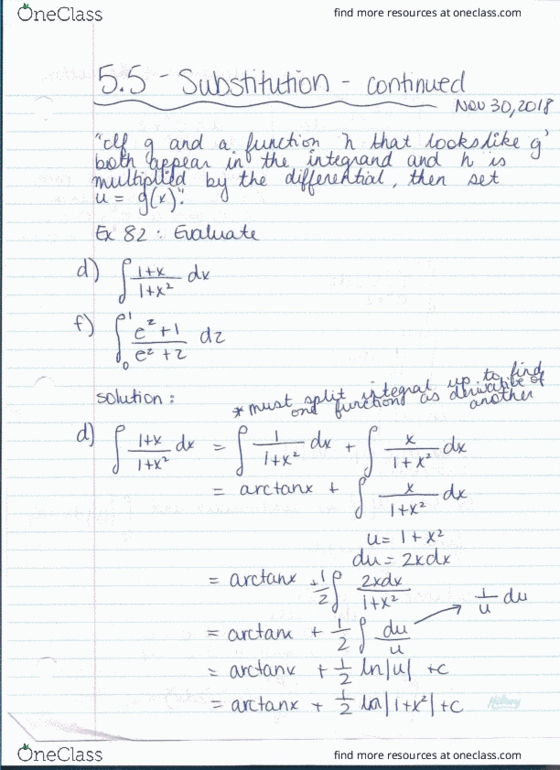 OneClass find more resources at oneclass.com
5.5 - Substitution - continued
Nov 30, 2018
"If g and a function h that looks like g'
both appear in the integrand and h is
multiplied by the differential, then set
u = g(x)".
Ex 82 : Evaluate
d) ∫ (1+x)/(1+x²) dx
f) ∫₀¹ (e^z+1)/(e^z+z) dz
solution : * must split integral up to find
one function as derivative of
another
d) ∫ (1+x)/(1+x²) dx = ∫ 1/(1+x²) dx + ∫ x/(1+x²) dx
= arctanx + ∫ x/(1+x²) dx
u = 1+x²
du = 2xdx
= arctanx + 1/2 ∫ 2xdx/(1+x²)
= arctanx + 1/2 ∫ du/u → 1/u du
= arctanx + 1/2 ln|u| +c
= arctanx + 1/2 ln|1+x²| +c
OneClass find more resources at oneclass.com